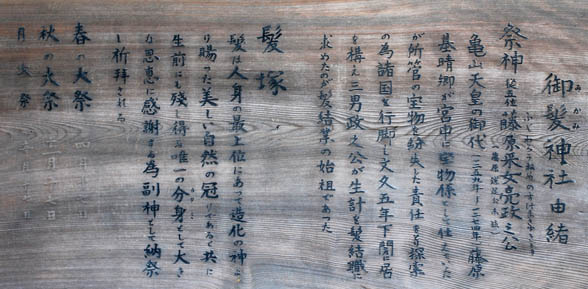 御髪神社由緒
祭神 従五位 藤原采女亮政之公
亀山天皇の御代(一二五九年〜一二七四年)藤原
基晴卿が宮中に宝物係として仕えていた
が所管の宝物を紛失した責任を負う探索
の為諸国を行脚し文久五年下関に居
を構え三男政之公が生計を髪結職に
求めたのが髪結業の始祖であった
髪塚
髪は人身の最上位にあって造化の神より
賜った美しい自然の冠であるが共に
生前にも残し得る唯一の分身として大き
な恩恵に感謝する為副神として納祭
し祈拝される
春の大祭 四月
秋の大祭
月次祭